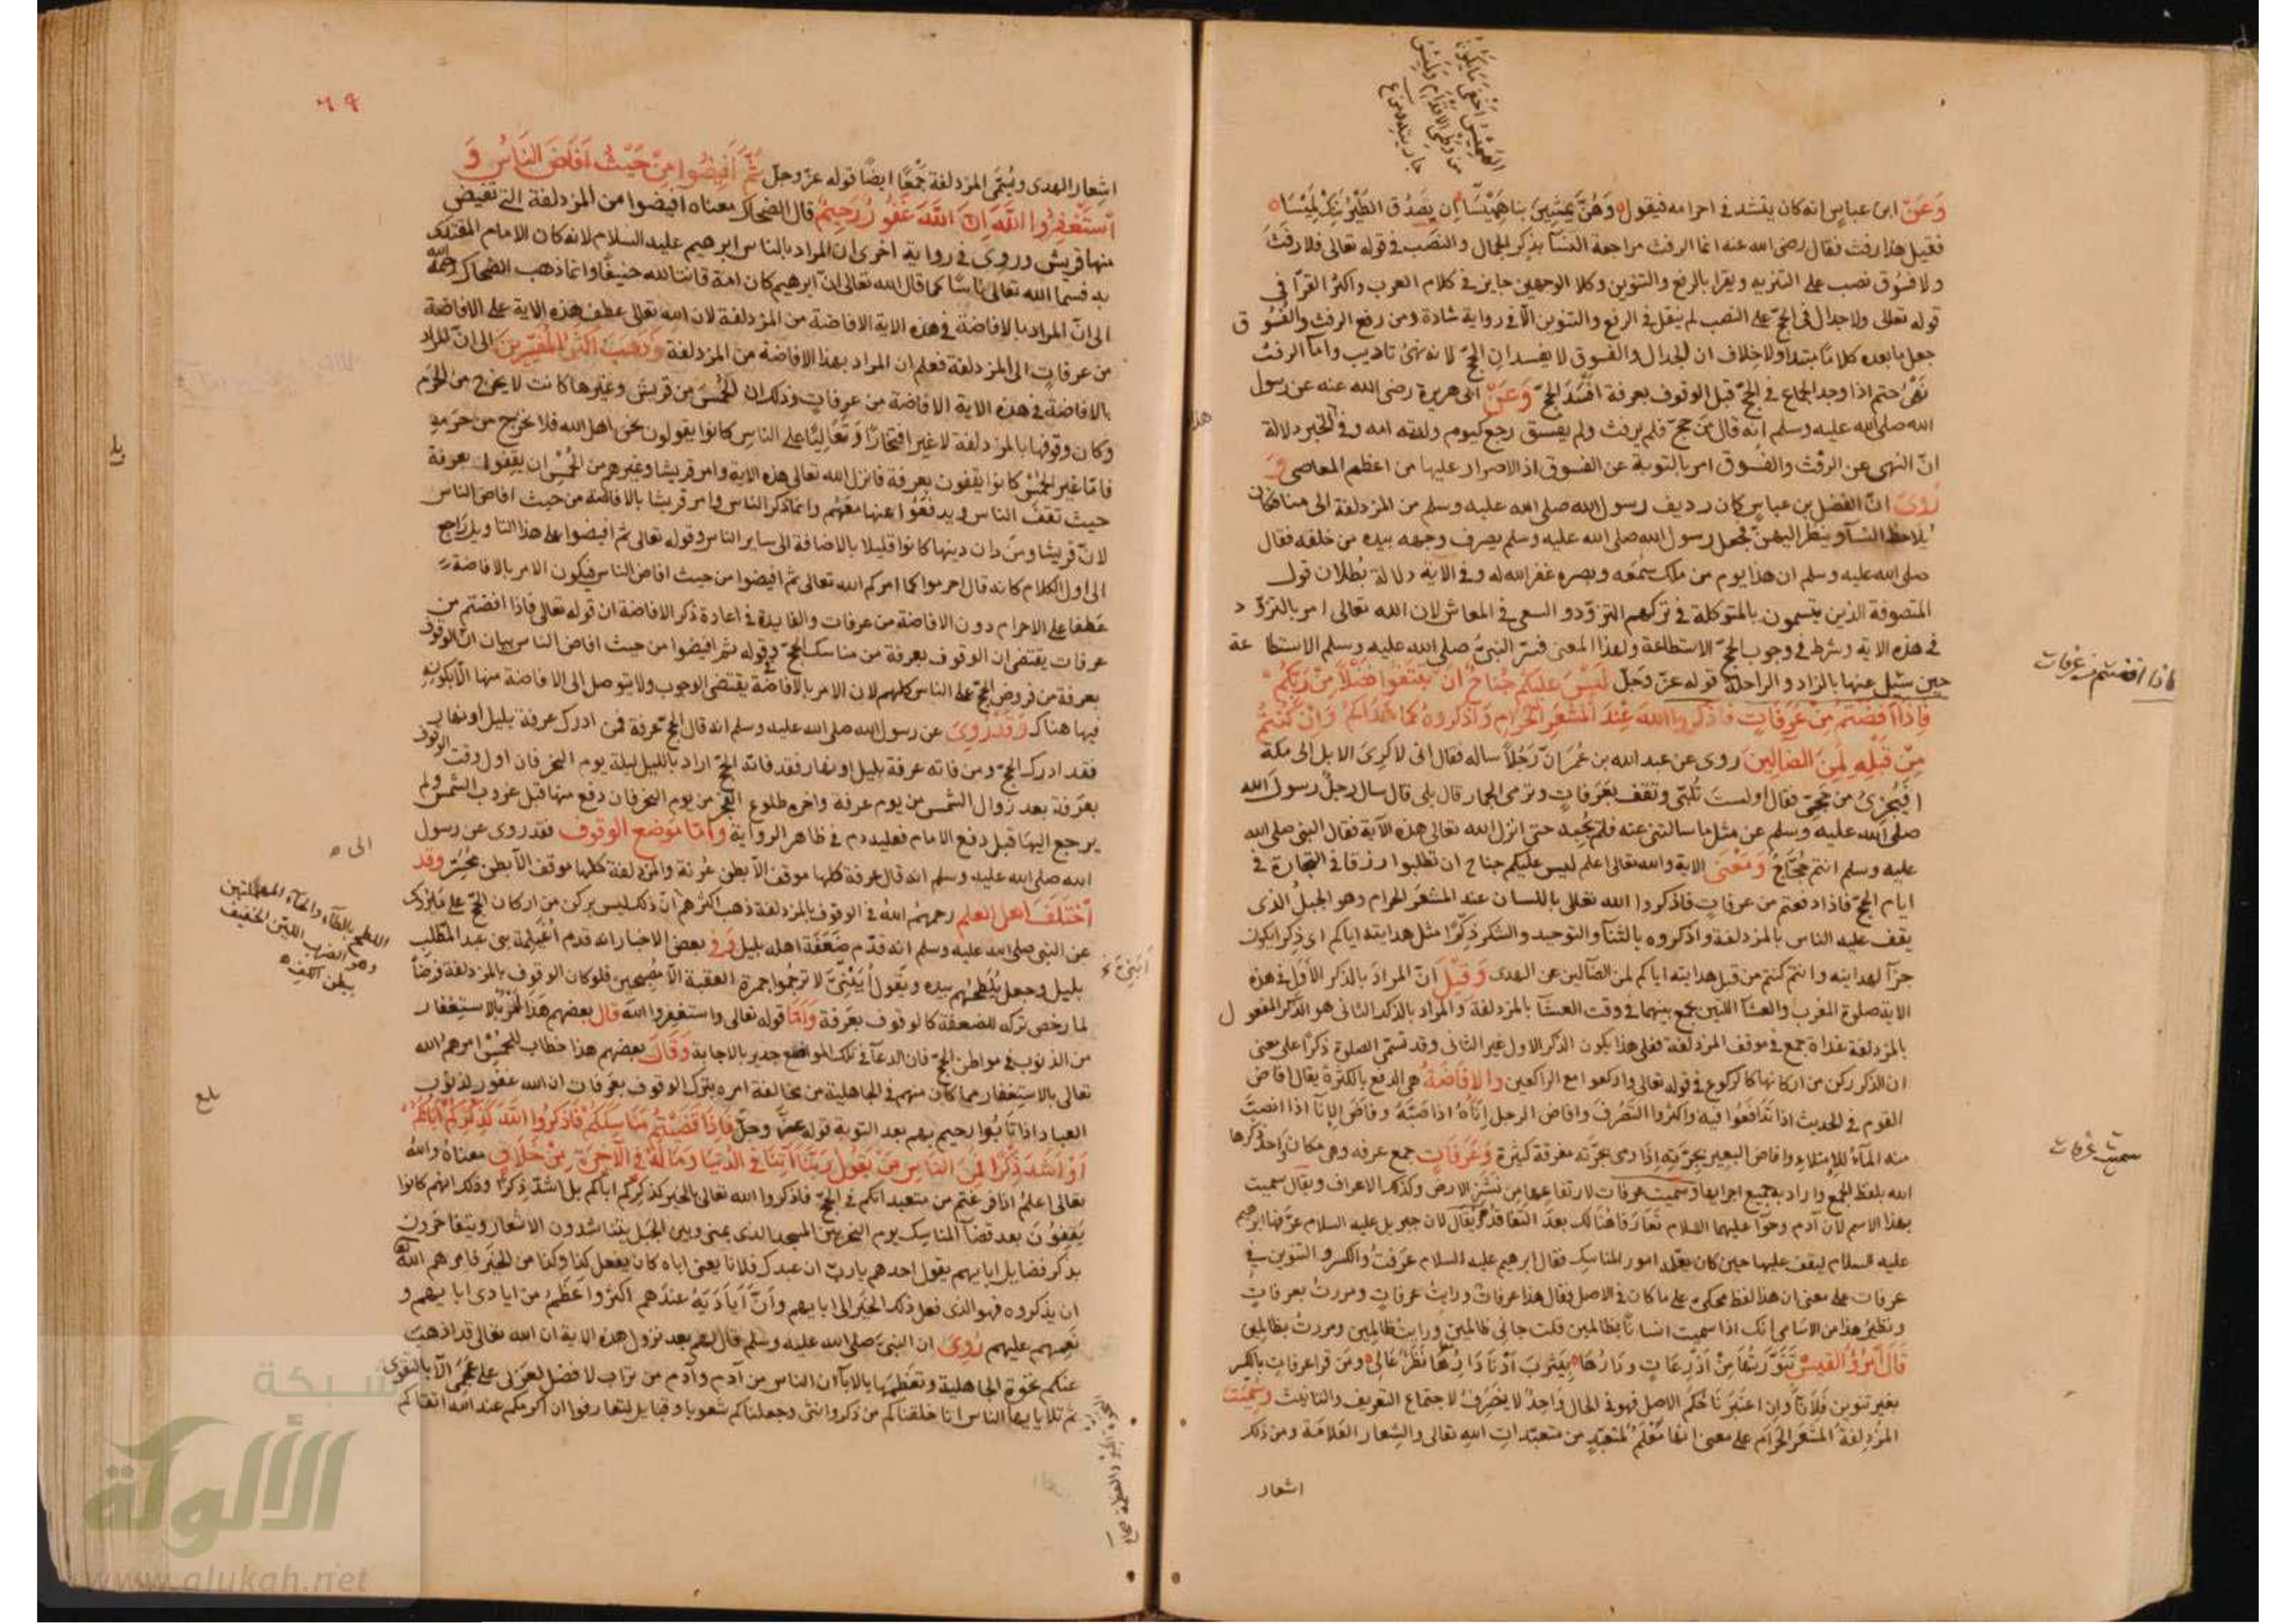 وَعَنْ ابن عباس انه كان ينشد في احرامه فيقول وَهُنَّ يمشينَ بنا هَمِيْسَا ان يصدُق الطير ننك لميسا
فقيل هذا رفث فقال رضى الله عنه انما الرفث مراجعة النساء بذكر الجماع والنصب في قوله تعالى فلا رفث
ولا فسوق نصب على التنزيه ويقرا بالرفع والتنوين وكلا الوجهين جايز في كلام العرب واكثر القراء في
قوله تعالى ولا جدال في الحجّ على النصب لم ينقل في الرفع والتنوين الّا في رواية شاذة ومن رفع الرفث والفسُوق
جعل ما بعده كلامًا مبتدا ولا خلاف ان الجدال والفسوق لا يفسدان الحجّ لانه نهيُ تاديب واما الرفث
نَهْىُ حتم اذا وجد الجماع في الحجّ قبل الوقوف بعرفة افسَد الحجّ وَعَنْ ابى هريرة رضى الله عنه عن رسول
الله صلى الله عليه وسلم انه قال من حجّ فلم يرفث ولم يفسق رجع كيوم ولدته امه وفي الخبر دلالة
انّ النهى عن الرفث والفسُوق امر بالتوبة عن الفسوق اذ الاصرار عليها من اعظم المعاصى وَ
رُوىَ انّ الفضل بن عباس كان رديف رسول الله صلى الله عليه وسلم من المزدلفة الى منا فكان
يُلاحظ النسآء وينظر اليهنّ فجعل رسول الله صلى الله عليه وسلم يصرف وجهه بيده من خلفه فقال
صلى الله عليه وسلم ان هذا يوم من ملك سَمعَه وبصره غفر الله له وفي الآية دلالة بُطلان قول
المتصوفة الذين يتسمون بالمتوكلة في تركهم التزوّد والسعى في المعاش لان الله تعالى امر بالتزوّد
في هذه الاية وشرط في وجوب الحجّ الاستطاعة ولهذا المعنى فسّر النبىّ صلى الله عليه وسلم الاستطاعة
حين سئل عنها بالزاد والراحلة قوله عزّ وجلّ لَيْسَ عَلَيْكُمْ جُنَاحٌ اَنْ تَبْتَغُوا فَضْلًا مِنْ رَبِّكُمْ
فَاِذَا اَفَضْتُمْ مِنْ عَرَفَاتٍ فَاذْكُرُوا اللهَ عِنْدَ الْمَشْعَرِ الْحَرَامِ وَاذْكُرُوهُ كَمَا هَدَاكُمْ وَاِنْ كُنْتُمْ
مِنْ قَبْلِهِ لَمِنَ الضَّالِّينَ روى عن عبد الله بن عُمَر انّ رجُلًا ساله فقال انى لاكرىَ الابل الى مكة
افَيُجْزئُ من حَجّى فقال اولستَ تُلبّى وتقف بعَرفاتٍ وترمى الجمار قال بلى قال سال رجلٌ رسول الله
صلى الله عليه وسلم عن مثل ما سالتنى عنه فلم يُجبه حتى انزل الله تعالى هذه الآية فقال النبى صلى الله
عليه وسلم انتم حُجّاجٌ وَمَعْنَى الاية والله تعالى اعلم ليس عليكم جناح ان تطلبوا رزقا في التجارة في
ايام الحجّ فاذا دفعتم من عرفاتٍ فاذكروا الله تعالى باللسان عند المشعَر الحرام وهو الجبلُ الذى
يقف عليه الناس بالمزدلفة واذكروه بالثنآء والتوحيد والشكر ذِكْرًا مثل هدايته اياكم اى ذِكرا يكون
جزآ لهدايته وانتم كنتم من قبل هدايته اياكم لمن الضآلين عن الهدى وَقِيْلَ انّ المرادَ بالذكر الاوّل في هذه
الاية صلوة المغرب والعشآ اللتين يجمع بينهما في وقت العشآ بالمزدلفة وَالمراد بالذكر الثانى هو الذكر المفعول
بالمزدلفة غداة جمع في موقف المزدلفة فعلى هذا يكون الذكر الاول غير الثانى وقد تسمّى الصلوة ذكرًا على معنى
ان الذكر ركن من اركانها كالركوع في قوله تعالى واركعوا مع الراكعين والِافَاضَةُ هى الدفع بالكثرة يقال افاض
القوم في الحديث اذا تَدَافَعُوا فيه واكثروا التصَرُّفَ وافاض الرجل اِنَاءَهُ اذا صَبَّهُ وفَاضَ الإناَ اذا انصبّ
منه المآءُ للامتلاءِ وافاض البعير بجِرّتِه اِذا رمى بجِرّته متفرقة كثيرة وَعَرَفَاتٍ جمع عرفه وهى مكان وَاحد ذكرها
الله بلفظ الجمع واراد به جميع اجزايها وسميت عرفات لارتفاعها من نَشَزِ الارض وكذلك الاعراف ويقال سميت
بهذا الاسم لان آدم وحوّا عليهما السلام تعَارَفا هُنَالكَ بعدَ التفاقد ويُقالُ لان جبريل عليه السلام عرّفها ابرهيم
عليه السلام ليقف عليها حين كان يعلّمه امور المناسك فقال ابرهيم عليه السلام عرَفتُ والكسر والتنوين في
عرفات على معنى ان هذا لفظ محكىّ على ما كان في الاصل يقال هذا عرفاتٌ ورايتُ عرفاتٍ ومررتُ بعرفاتٍ
ونظيرُ هذا من الاسامى انك اذا سميت انسانًا بظالمين قلت جانى ظالمين ورايتُ ظالمين ومررتُ بظالمين
قَالَ اَمْرُؤُ القَيسْ تَنَوَّرْتُهَا مِنْ اَذْرِعَاتٍ وَدَارُهَا بِيَثْرِبَ اَدْنَا دَارِهَا نَظَرٌ عَالِى ومَن قرا عرفاتِ بالكسر
بغير تنوين فَلانّا وان اعتبرنا حُكمَ الاصل فهو في الحال وَاحِدٌ لا يَنصَرِفُ لاجتماع التعريف والتانيث وسُمِّيَت
المزدلفةُ المشعَر الحَرَام على معنى انها مَعْلَمٌ لمتعبّدٍ من متعبّداتِ اللهِ تعالى والشِعار العَلامَة ومن ذلك
اشعار
اذا افضتم من عرفات
سميت عرفات
هذا
٦٩
اشِعار الهدى ويُسَمَّى المزدلفة جَمْعًا ايضًا قوله عزّ وجلّ ثُمَّ اَفِيضُوا مِنْ حَيْثُ اَفَاضَ النَاسُ وَ
اسْتَغْفِرُوا اللهَ اِنَّ اللَّهَ غَفُورٌ رَحِيمٌ قال الضحاك معناه افيضوا من المزدلفة التى تفيض
منها قريش وروىَ في رواية اخرى ان المراد بالناس ابرهيم عليه السلام لانه كان الامام المقتدى
به فسماه الله تعالى نَاسًا كما قال الله تعالى انّ ابرهيم كان امة قانتا لله حنيفًا وانما ذهب الضحاك رحمه الله
الى انّ المراد بالافاضة في هذه الاية الافاضة من المزدلفة لان الله تعالى عطف هذه الاية على الافاضة
من عرفاتٍ الى المزدلفة فعلم ان المراد بهذا الافاضة من المزدلفة وَذهَبَ اكثر المُفَسِّرِينَ الى انّ المراد
بالافاضة في هذه الاية الافاضة من عرفاتٍ وذلك ان الحُمْسَ من قريش وغيرها كانت لا يخرج من الحَرَم
وكان وقوفها بالمزدلفة لا غير افتخارًا وتعَاليًا على الناس كانوا يقولون نحن اهل الله فلا نخرج من حرَمهِ
فامّا غير الحُمْسِ كانوا يقفون بعرفة فانزل الله تعالى هذه الاية وامر قريشا وغيرهم من الحُمْس ان يقِفُوا بعرفة
حيث تقف الناس ويدفَعُوا عنها معَهُم وانما ذكر الناس وامر قريشا بالافاضة من حيث افاض الناس
لانّ قريشا ومن دان دينها كانوا قليلا بالاضافة الى ساير الناس وقوله تعالى ثم افيضوا على هذا التاويل راجع
الى اول الكلام كانه قال احرموا كما امركم الله تعالى ثم افيضوا من حيث افاض الناس فيكون الامر بالافاضة
عَطفا على الاحرام دون الافاضة من عرفات والفايدة في اعادة ذكر الافاضة ان قوله تعالى فاذا افضتم من
عرفات يقتضى ان الوقوف بعرفة من مناسك الحجّ وقوله ثم افيضوا من حيث افاض الناس بيان انّ الوقوف
بعرفة من فروض الحجّ على الناس كلهم لان الامر بالافاضة يقتضى الوجوب ولا يتوصل الى الافاضة منها الّا بكونه
فيها هناك وَقَدْ رُوِىَ عن رسول الله صلى الله عليه وسلم انه قال الحجّ عرفة فمن ادرك عرفة بليل او نهار
فقد ادرك الحجّ ومن فاته عرفة بليل او نهار فقد فاته الحجّ اراد بالليل ليلة يوم النحر فان اول وقت الوقوف
بعَرفة بعد زوال الشمس من يوم عرفة واخره طلوع الفجر من يوم النحر فان دفع منها قبل غروب الشمس ولم
يرجع اليهَا قبل دفع الامام فعليه دم في ظاهر الرواية وَامّا مَوْضع الوقوف فقد روى عن رسول
الله صلى الله عليه وسلم انه قال عرفة كلها موقف الّا بطن عُرَنة والمزدلفة كلها موقف الّا بطن مُحَسِّر وَقد
اخْتَلَفَ اهل العلم رحمهُم اللهُ في الوقوف بالمزدلفة ذهب اكثرهم انّ ذلك ليس بركن من اركان الحجّ على ما رُوى
عن النبى صلى الله عليه وسلم انه قدّم ضَعَفة اهله بليل وَفى بعض الاخبار انه قدم اُغَيلمة بنى عبد المطّلب
بليل وجعل يُلَطِحُهُم بيده ويَقُولُ اُبَيْنِىَّ لا ترمُوا جمرة العقبة الّا مُصْبحين فلو كان الوقوف بالمزدلفة فرضًا
لما رخص تركه للضعفة كالوقوف بعَرفة وَامّا قوله تعالى واستغفِروا اللهَ قال بعضهم هَذا امْرٌ بالاستِغفار
من الذنوب في مواطن الحجّ فان الدعآ في تلك المواضع جدير بالاجابة وَقالَ بعضهم هذا خطاب للحُمْسِ امرهم الله
تعالى بالاستِغفار مما كان منهم في الجاهلية من مخالفة امره بترك الوقوف بعرفات ان الله غفُور لذنوب
العباد اذا تابُوا رحيم بهم بعد التوبة قوله عزّ وجلّ فَاِذَا قَضَيْتُمْ مَنَاسِكَكُمْ فَاذكُرُوا اللهَ كَذِكْرِكُمْ آبَاءَكُمْ
اَوْ اَشَدَّ ذِكْرًا فَمِنَ الناسِ مَنْ يَقُولُ رَبَّنَا آتِنَا فِى الدّنْيَا وَمَا لَهُ فِي الآخِرَةِ مِنْ خَلَاقٍ معناهُ والله
تعالى اعلمُ اذا فرغتم من متعبداتكم في الحجّ فاذكروا الله تعالى بالخير كذكركم اباكم بل اشدّ ذِكرًا وذلك انهم كانوا
يَقِفُونَ بعد قضآ المناسِك يوم النحر بين المسجد الذى بمنى وبين الجبَل يتناشدون الاشعار ويتفاخرون
بذكر فضايل ابايهم يقول احدهم ياربّ ان عبدك فلانا يعنى اباه كان يفعل كذا وكذا من الخير فامرهم الله
ان يذكروه فهو الذى فعل ذلك الخير الى ابايهم وانّ اَيَادِيَهُ عندهم اكثرُ واَعظَمُ من ايادى ابايهم و
نعمهم عليهم رُوىَ ان النبىّ صلى الله عليه وسلم قال لهم بعد نزول هذه الاية ان الله تعالى قد اذهب
عنكم نخوة الجاهلية وتعظمها بالاباء ان الناس من آدم وآدم من تراب لا فضل لعَرَبىّ على عجمىّ الّا بالتقوى
ثم تلا يايها الناس انا خلقناكم من ذكر وانثى وجعلناكم شعوبا وقبايل لتعارفوا ان اكرمكم عند الله اتقاكم
الى
اللطح بالطآء والحآء المهملتين
وهو الضرب الليّن الخفيف
ببطن الكف
بلغ
شبكة
الألوكة
www.alukah.net